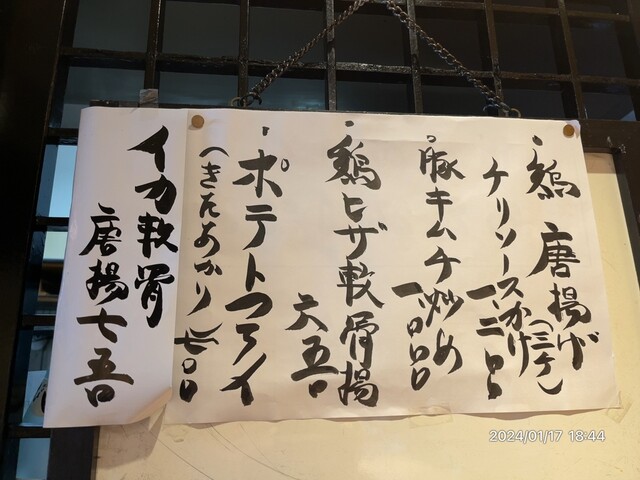 ・鶏 唐揚げ(三ケ)
チリソースかけ
一、二〇〇
・豚キムチ炒め
一、〇〇〇
・鶏ヒザ軟骨揚
六五〇
・ポテトフライ
(きたあかり)
七〇〇
イカ軟骨
唐揚七五〇
2024/01/17 18:44